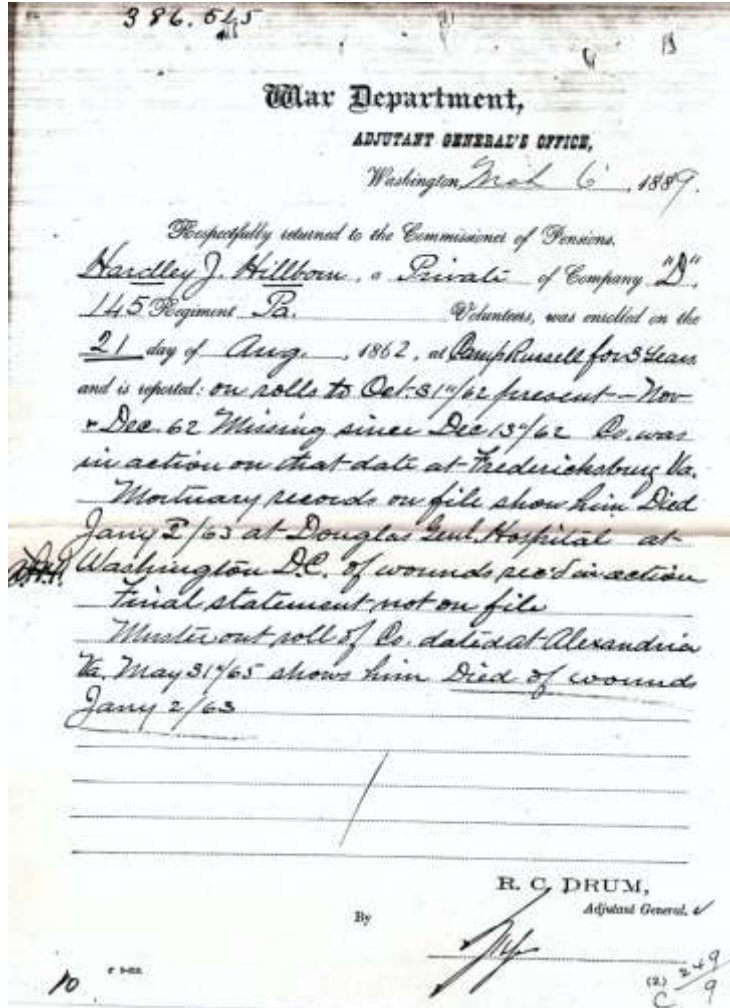 386.515
War Department,
ADJUTANT GENERAL'S OFFICE,
Washington, Mch 6, 1889.
Respectfully returned to the Commissioner of Pensions.
Hardley J. Hillborn, a Private of Company "D".
145 Regiment Pa. Volunteers, was enrolled on the
21 day of Aug., 1862, at Camp Russell for 3 Years
and is reported: on rolls to Oct. 31"/62 present - Nov
& Dec. 62 Missing since Dec 13"/62 Co. was
in action on that date at Fredericksburg Va.
Mortuary records on file show him Died
Jany 2/63 at Douglas Genl. Hospital at
Washington D.C. of wounds rec'd in action
Final statement not on file
Muster out roll of Co. dated at Alexandria
Va. May 31"/65 shows him Died of wounds
Jany 2/63
R. C. DRUM,
Adjutant General.
By
10
(2)
C
249
9